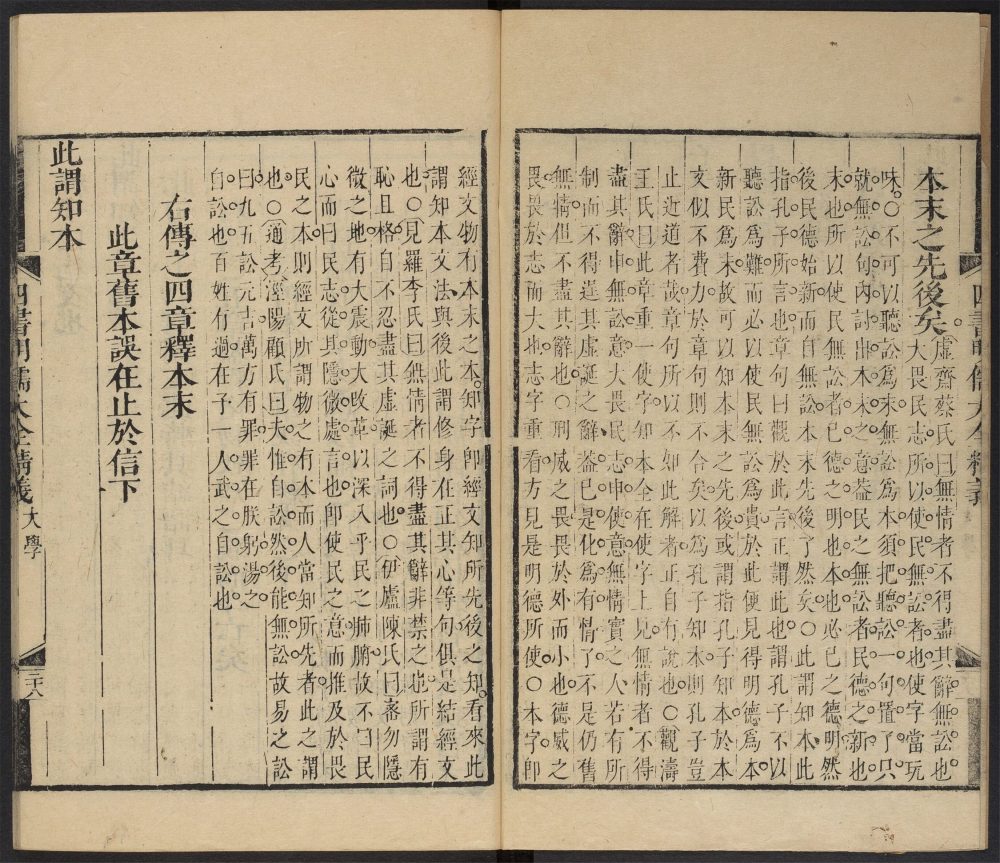 本末之先後矣虛齋蔡氏曰無情者不得盡其辭無訟也大畏民志所以使民無訟者也使字當玩
味○不可以聽訟爲末無訟爲本須把聽訟一句置了只
就無訟句內討出本末之意葢民之無訟者民德之新也
末也所以使民無訟者己德之明也本也必己之德明然
後民德始新而自無訟本末先後了然矣○此謂知本此
指孔子所言也章句曰觀於此言正謂此也謂孔子不以
聽訟爲難而必以使民無訟爲貴於此便見得明德爲本
新民爲末故可以知本末之先後或謂指孔子知本於本
文似不費力於章句則不合矣以爲孔子知本則孔子豈
止近道者哉章句所以不如此解者正自有說也○觀濤
王氏曰此章重一使字知本全在使字上見無情者不得
盡其辭申無訟意大畏民志申使意無情實之人若有所
制而不得逞其虛誕之辭葢已是化爲有情了不是仍舊
無情但不盡其辭也○刑威之畏畏於外而小也德威之
畏畏於志而大也志字重看方見是明德所使○本字卽
經文物有本末之本知字卽經文知所先後之知看來此
謂知本文法與後此謂修身在正其心等句俱是結經文
也○見羅李氏曰無情者不得盡其辭非禁之也所謂有
恥且格自不忍盡其虛誕之詞也○伊廬陳氏曰畜勿隱
微之地有大震動大改革以深入乎民之肺腑故不曰民
心而曰民志從其隱微處言也卽使民之意而推及於畏
民之本則經文所謂物之有本而人當知所先者此之謂
也○通考涇陽顧氏曰夫惟自訟然後能無訟故易之訟
曰九五訟元吉萬方有罪罪在朕躬湯之
自訟也百姓有過在予一人武之自訟也
右傳之四章釋本末
此章舊本誤在止於信下
此謂知本
四書明儒大全精義 大學 三十八